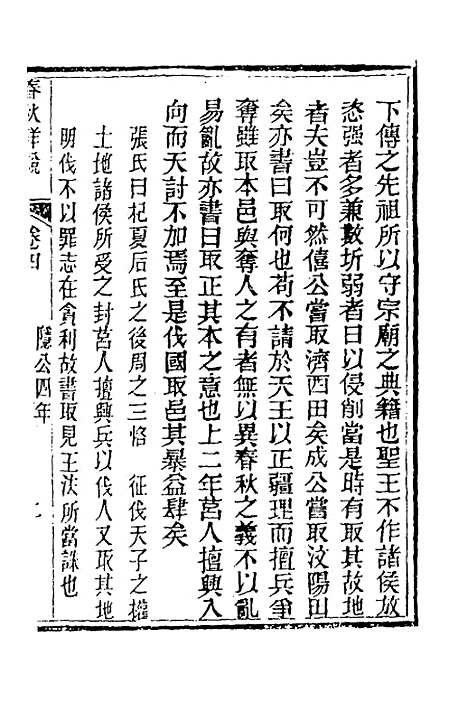 下傳之先祖所以守宗廟之典籍也聖王不作諸侯放
恣强者多兼數圻弱者日以侵削當是時有取其故地
者夫豈不可然僖公嘗取濟西田矣成公嘗取汶陽田
矣亦書曰取何也苟不請於天王以正疆理而擅兵爭
奪雖取本邑與奪人之有者無以異春秋之義不以亂
易亂故亦書曰取正其本之意也上二年莒人擅興入
向而天討不加焉至是伐國取邑其暴益肆矣
張氏曰杞夏后氏之後周之三恪　征伐天子之權
土地諸侯所受之封莒人擅興兵以伐人又取其地
明伐不以罪志在貪利故書取見王法所當誅也
春秋詳說　卷四　隱公四年　七